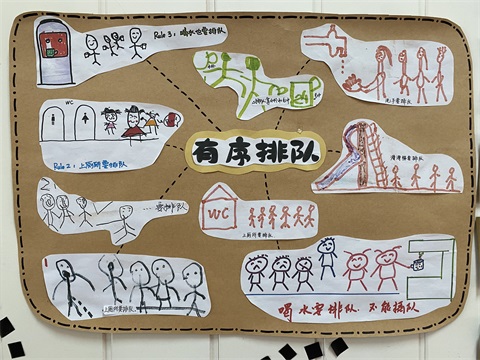 Rule 3: 喝水也要排队
洗手要排队
WC
Rule 2: 上厕所要排队
有序排队
滑滑梯要排队
要排队
WC
上厕所要排队
上厕所要排队
喝水要排队，不能插队